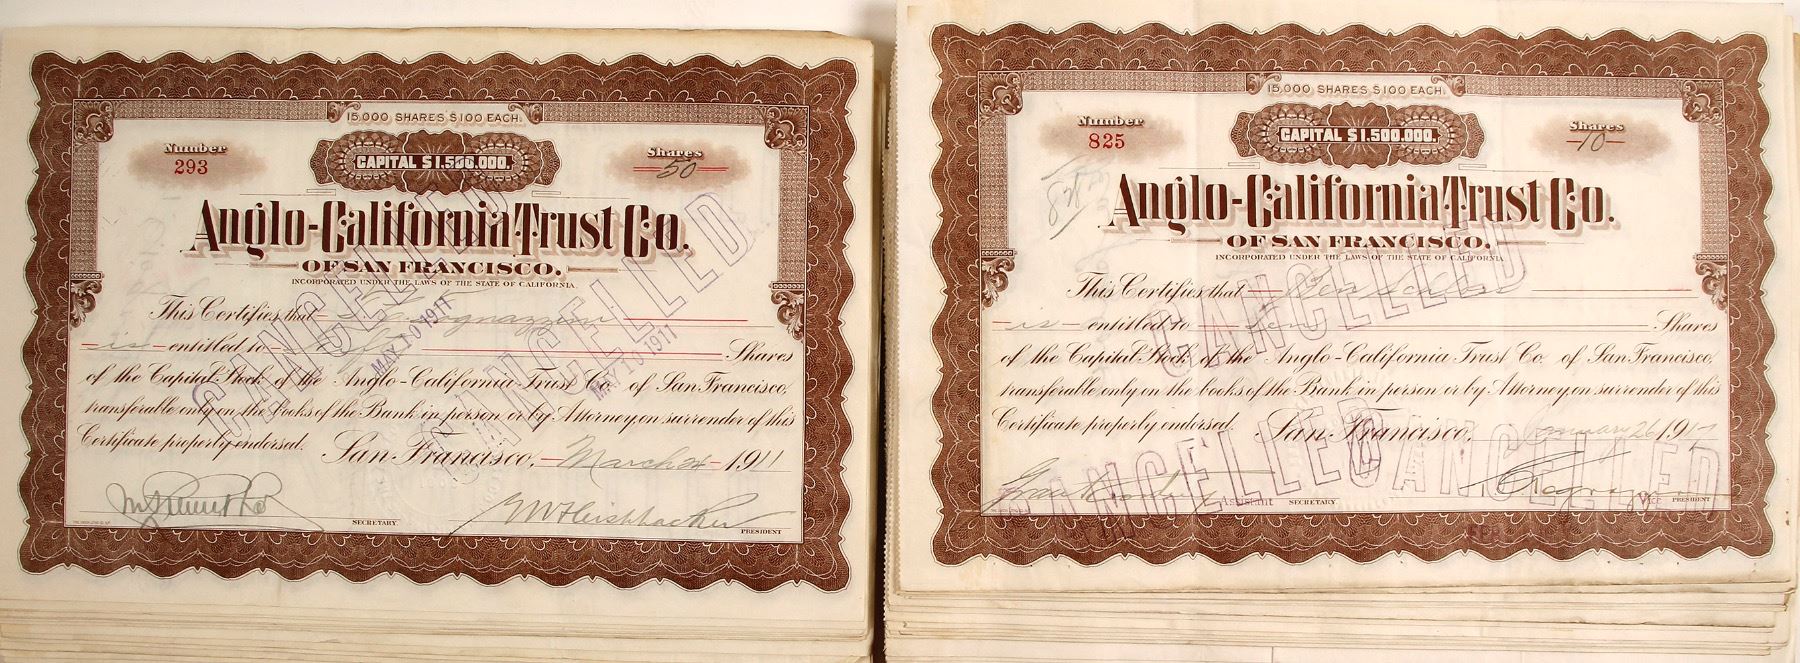 15,000 SHARES $100 EACH.
CAPITAL $1,500,000.
Number
293
Shares
50
Anglo-California Trust Co.
OF SAN FRANCISCO.
INCORPORATED UNDER THE LAWS OF THE STATE OF CALIFORNIA.
This Certifies that
is entitled to Fifty Shares
of the Capital Stock of the Anglo-California Trust Co. of San Francisco,
transferable only on the books of the Bank in person or by Attorney, on surrender of this
Certificate properly endorsed. San Francisco, March 24 1911
SECRETARY.
PRESIDENT
CANCELLED
MAY 10 1911
CANCELLED
MAY 10 1911
15,000 SHARES $100 EACH.
CAPITAL $1,500,000.
Number
825
Shares
10
Anglo-California Trust Co.
OF SAN FRANCISCO.
INCORPORATED UNDER THE LAWS OF THE STATE OF CALIFORNIA
This Certifies that
is entitled to Ten Shares
of the Capital Stock of the Anglo-California Trust Co. of San Francisco,
transferable only on the books of the Bank in person or by Attorney, on surrender of this
Certificate properly endorsed. San Francisco, January 26 1917
Assistant SECRETARY.
Vice PRESIDENT
CANCELLED
CANCELLED
CANCELLED